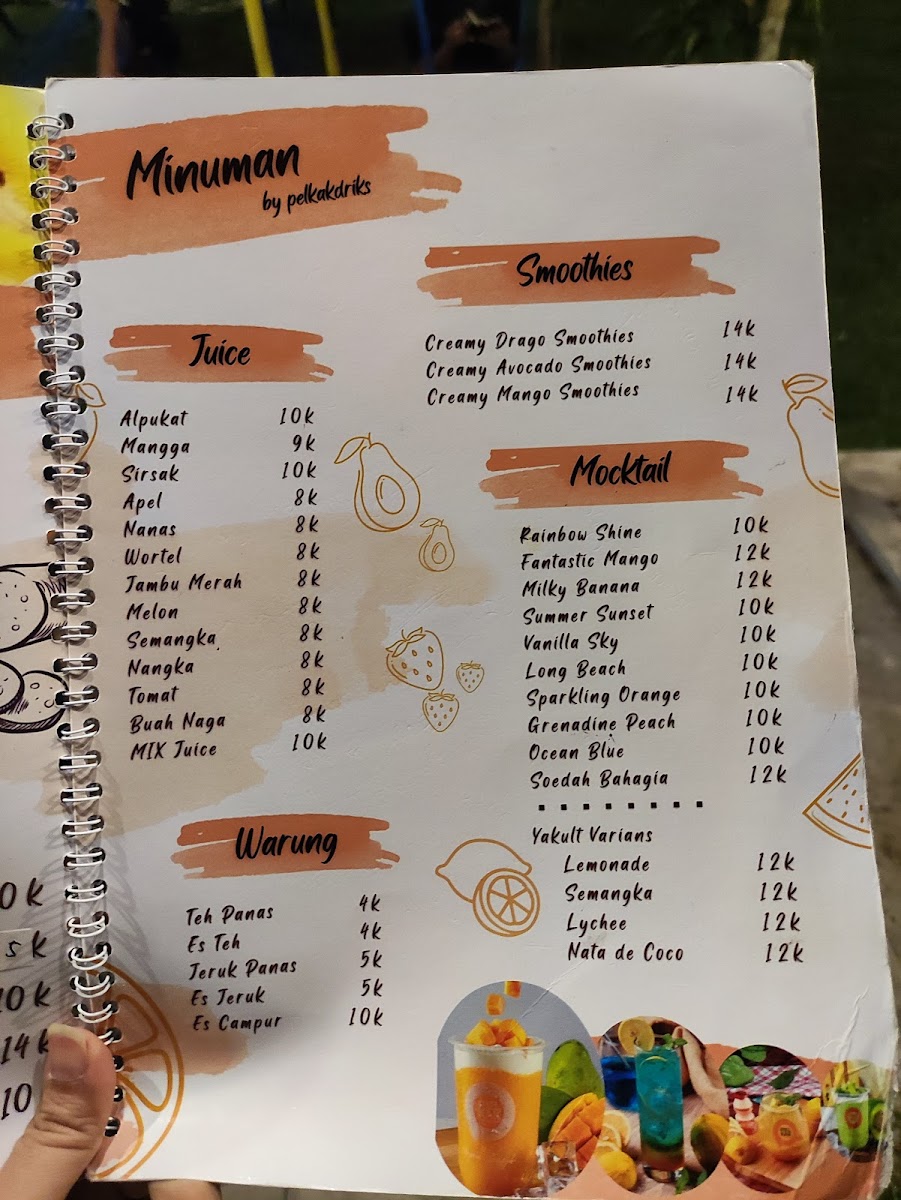 Minuman
by pelkakdriks
Juice
Alpukat 10k
Mangga 9k
Sirsak 10k
Apel 8k
Nanas 8k
Wortel 8k
Jambu Merah 8k
Melon 8k
Semangka 8k
Nangka 8k
Tomat 8k
Buah Naga 8k
MIX Juice 10k
Warung
Teh Panas 4k
Es Teh 4k
Jeruk Panas 5k
Es Jeruk 5k
Es Campur 10k
Smoothies
Creamy Drago Smoothies 14k
Creamy Avocado Smoothies 14k
Creamy Mango Smoothies 14k
Mocktail
Rainbow Shine 10k
Fantastic Mango 12k
Milky Banana 12k
Summer Sunset 10k
Vanilla Sky 10k
Long Beach 10k
Sparkling Orange 10k
Grenadine Peach 10k
Ocean Blue 10k
Soedah Bahagia 12k
Yakult Varians
Lemonade 12k
Semangka 12k
Lychee 12k
Nata de Coco 12k